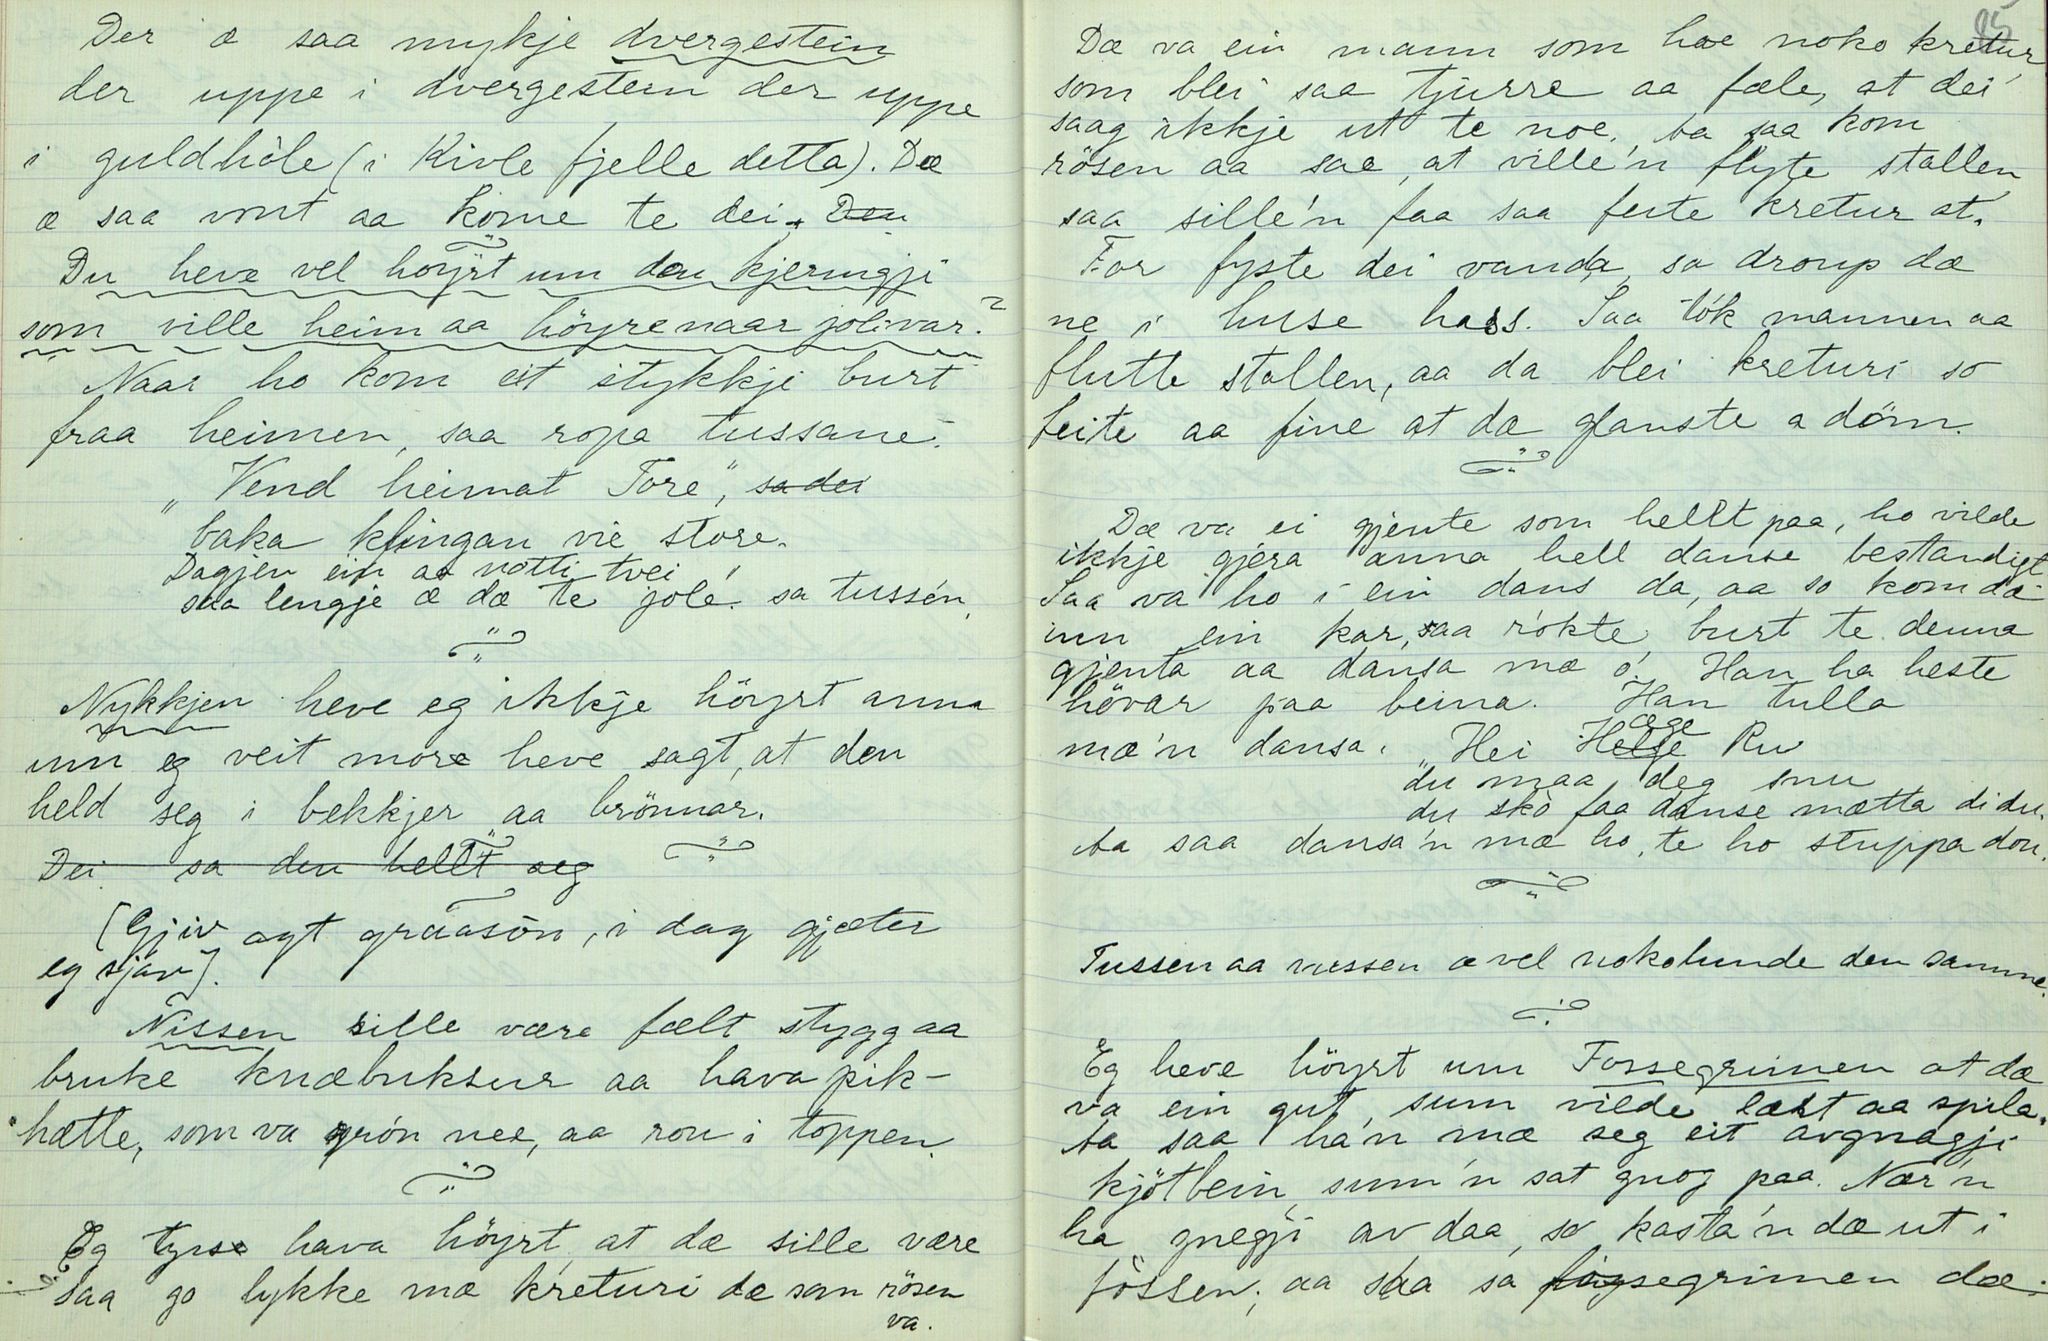 Der æ saa mykje dvergestein
der uppe i dvergestein der uppe
i guldhòle (i Kivle fjelle detta). Dæ
æ saa vont aa kome te dei. Den
Du heve vel höyrt um den kjeringji
som ville heim aa höyre naar joli var?
Naar ho kom eit stykkji burt
fraa heimen, saa ropa tussane:
"Vend heimat Tore", sa dei
baka klingan vie store.
Dagjen ein aa nòtti tvei
saa lengje æ dæ te jole! sa tussén,
Nykkjen heve eg ikkje höyrt anna
um eg veit more heve sagt, at den
held seg i bekkjer aa brönnar.
Dei sa den hellt seg
[Gjiv agt graasön, i dag gjæter
eg sjav].
Nissen sille være fælt stygg aa
bruke knæbuksur aa hava pik-
hætte, som va grón nee, aa rou i toppen.
Eg tyse hava höyrt, at dæ sille være
saa go lykke mæ kreturi dæ som rösen
va.
95
Dæ va ein mann som hae noko kretur,
som blei saa tjurre aa fæle, at dei
saag ikkje ut te noe. Aa saa kom
rösen aa sae, at ville'n flyte stallen,
saa sille'n faa saa feite kretur at.
For fyste dei vanda, sa droup dæ
ne i huse hass. Saa tók mannen aa
flutte stallen, aa da blei kreturi so
feite aa fine at dæ glanste a döm.
Dæ va ei gjente som hellt paa, ho vilde
ikkje gjera anna hell danse bestandigt
Saa va ho i ein dans da, aa so kom dæ
inn ein kar, saa rókte burt te denna
gjenta aa dansa mæ ó. Han ha heste
hövar paa beina. Han tulla
mæ'n dansa. "Hei Helje æge Ru
du maa deg snu
du skò faa danse mætta di du.
Aa saa dansa'n mæ ho, te ho stuppa dou.
Tussen aa nissen æ vel nokolunde den samme.
Eg heve höyrt um Fossegrimen at dæ
va ein gut, sum vilde lært aa spila.
Aa saa ha'n mæ seg eit avgnagji
kjötbein, sum'n sat gnog paa. Nær'n
ha gnegji av daa, so kasta'n dæ ut i
fòssen; aa saa sa fossegrimen dæ.